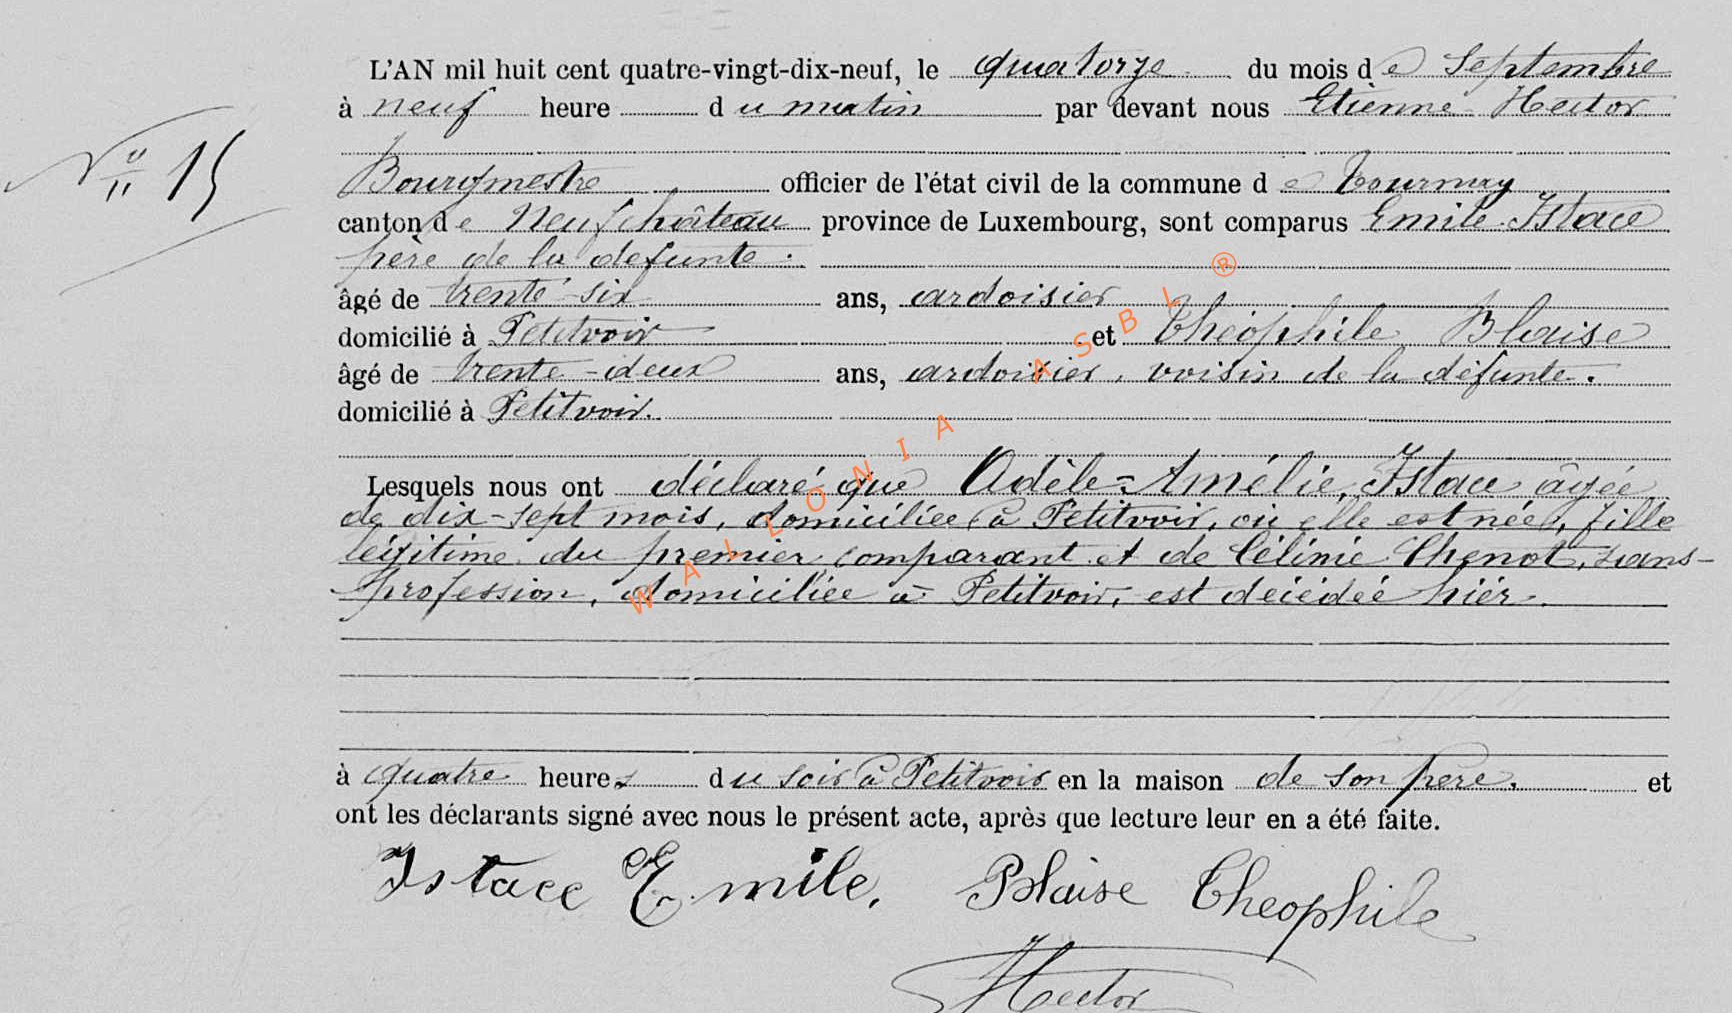 L'AN mil huit cent quatre-vingt-dix-neuf, le quatorze du mois de Septembre
à neuf heure du matin par devant nous Etienne Hector
N° 15
Bourgmestre officier de l'état civil de la commune de Tournay
canton de Neufchâteau province de Luxembourg, sont comparus Emile Istace
père de la défunte.
âgé de trente-six ans, ardoisier
domicilié à Petitvoir et Théophile Blaise
âgé de trente-deux ans, ardoisier, voisin de la défunte.
domicilié à Petitvoir.
Lesquels nous ont déclaré que Adèle-Amélie, Istace âgée
de dix-sept mois, domiciliée à Petitvoir, où elle est née, fille
légitime du premier comparant et de Célinie Thenot, sans-
profession, domiciliée à Petitvoir, est décédée hier.
à quatre heures du soir à Petitvoir en la maison de son père. et
ont les déclarants signé avec nous le présent acte, après que lecture leur en a été faite.
Istace Emile. Blaise Theophile
Hector
WALLONIA ASBL ®